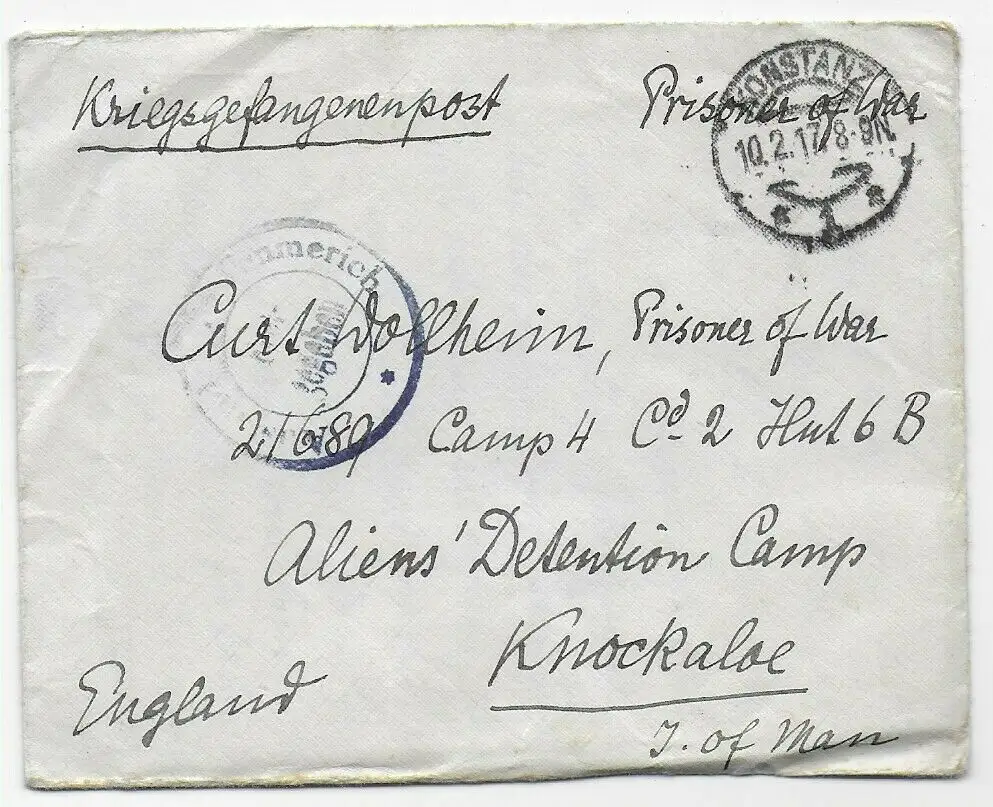 Kriegsgefangenenpost Prisoner of War
KONSTANZ
10.2.17. 8-9N.
* 1 *
Emmerich
Curt Wollheim, Prisoner of War
2/689 Camp 4 Cd. 2 Hut 6 B
Aliens' Detention Camp
Knockaloe
England
I. of Man